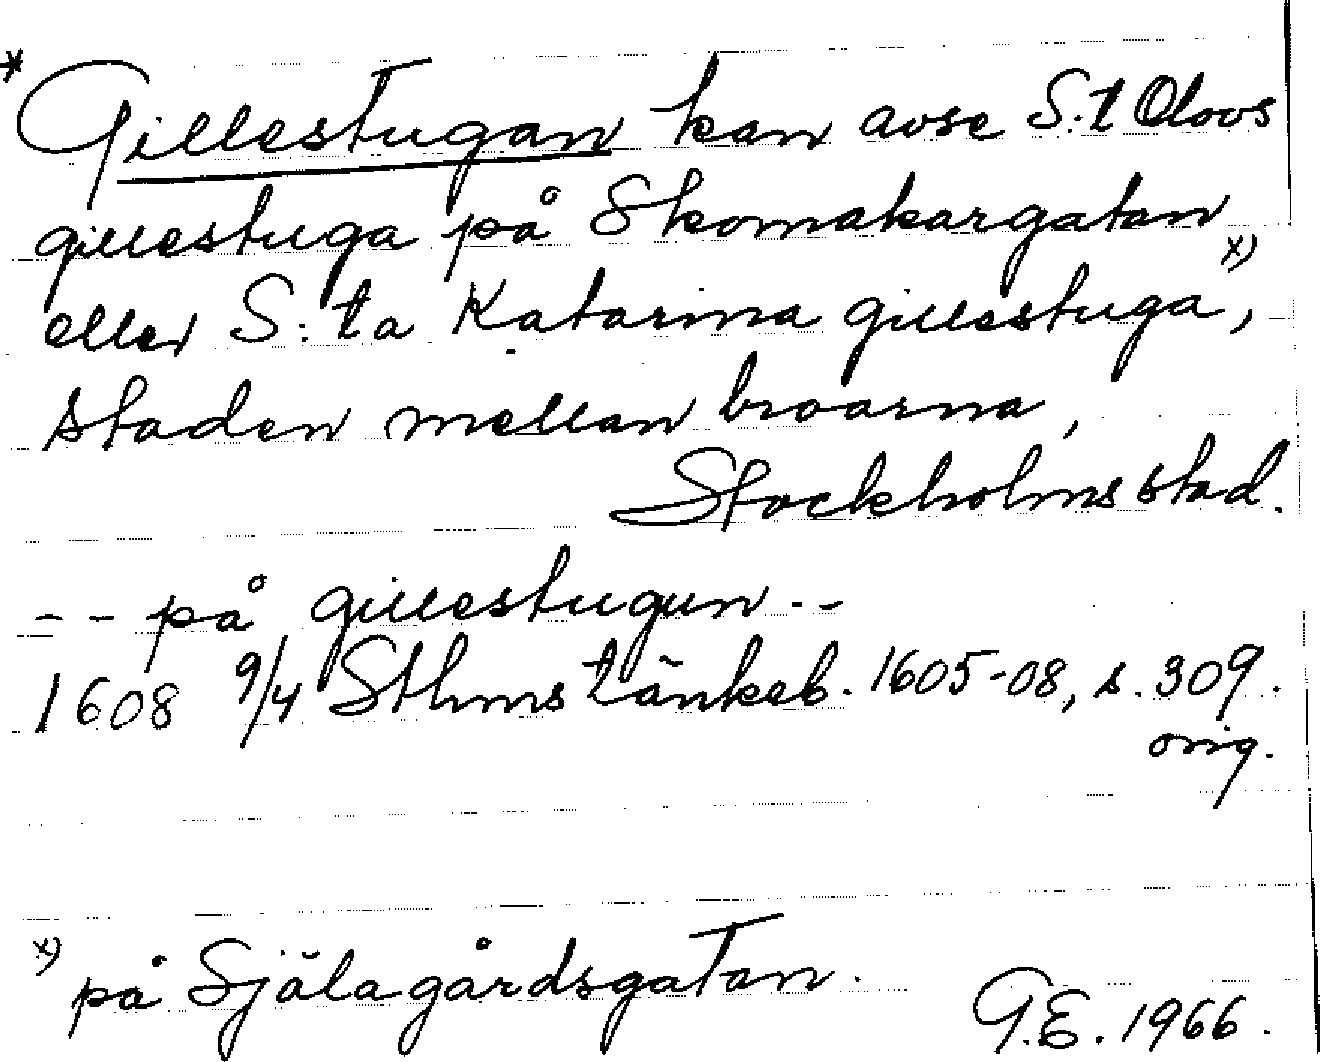 * Gillestugan kan avse S:t Olovs
gillestuga på Skomakargatan
eller S:ta Katarina gillestuga x),
staden mellan broarna,
Stockholms stad.
-- på gillestugun --
1608 9/4 Sthms tänkeb. 1605-08, s. 309.
orig.
x) på Själagårdsgatan.
G.E. 1966.